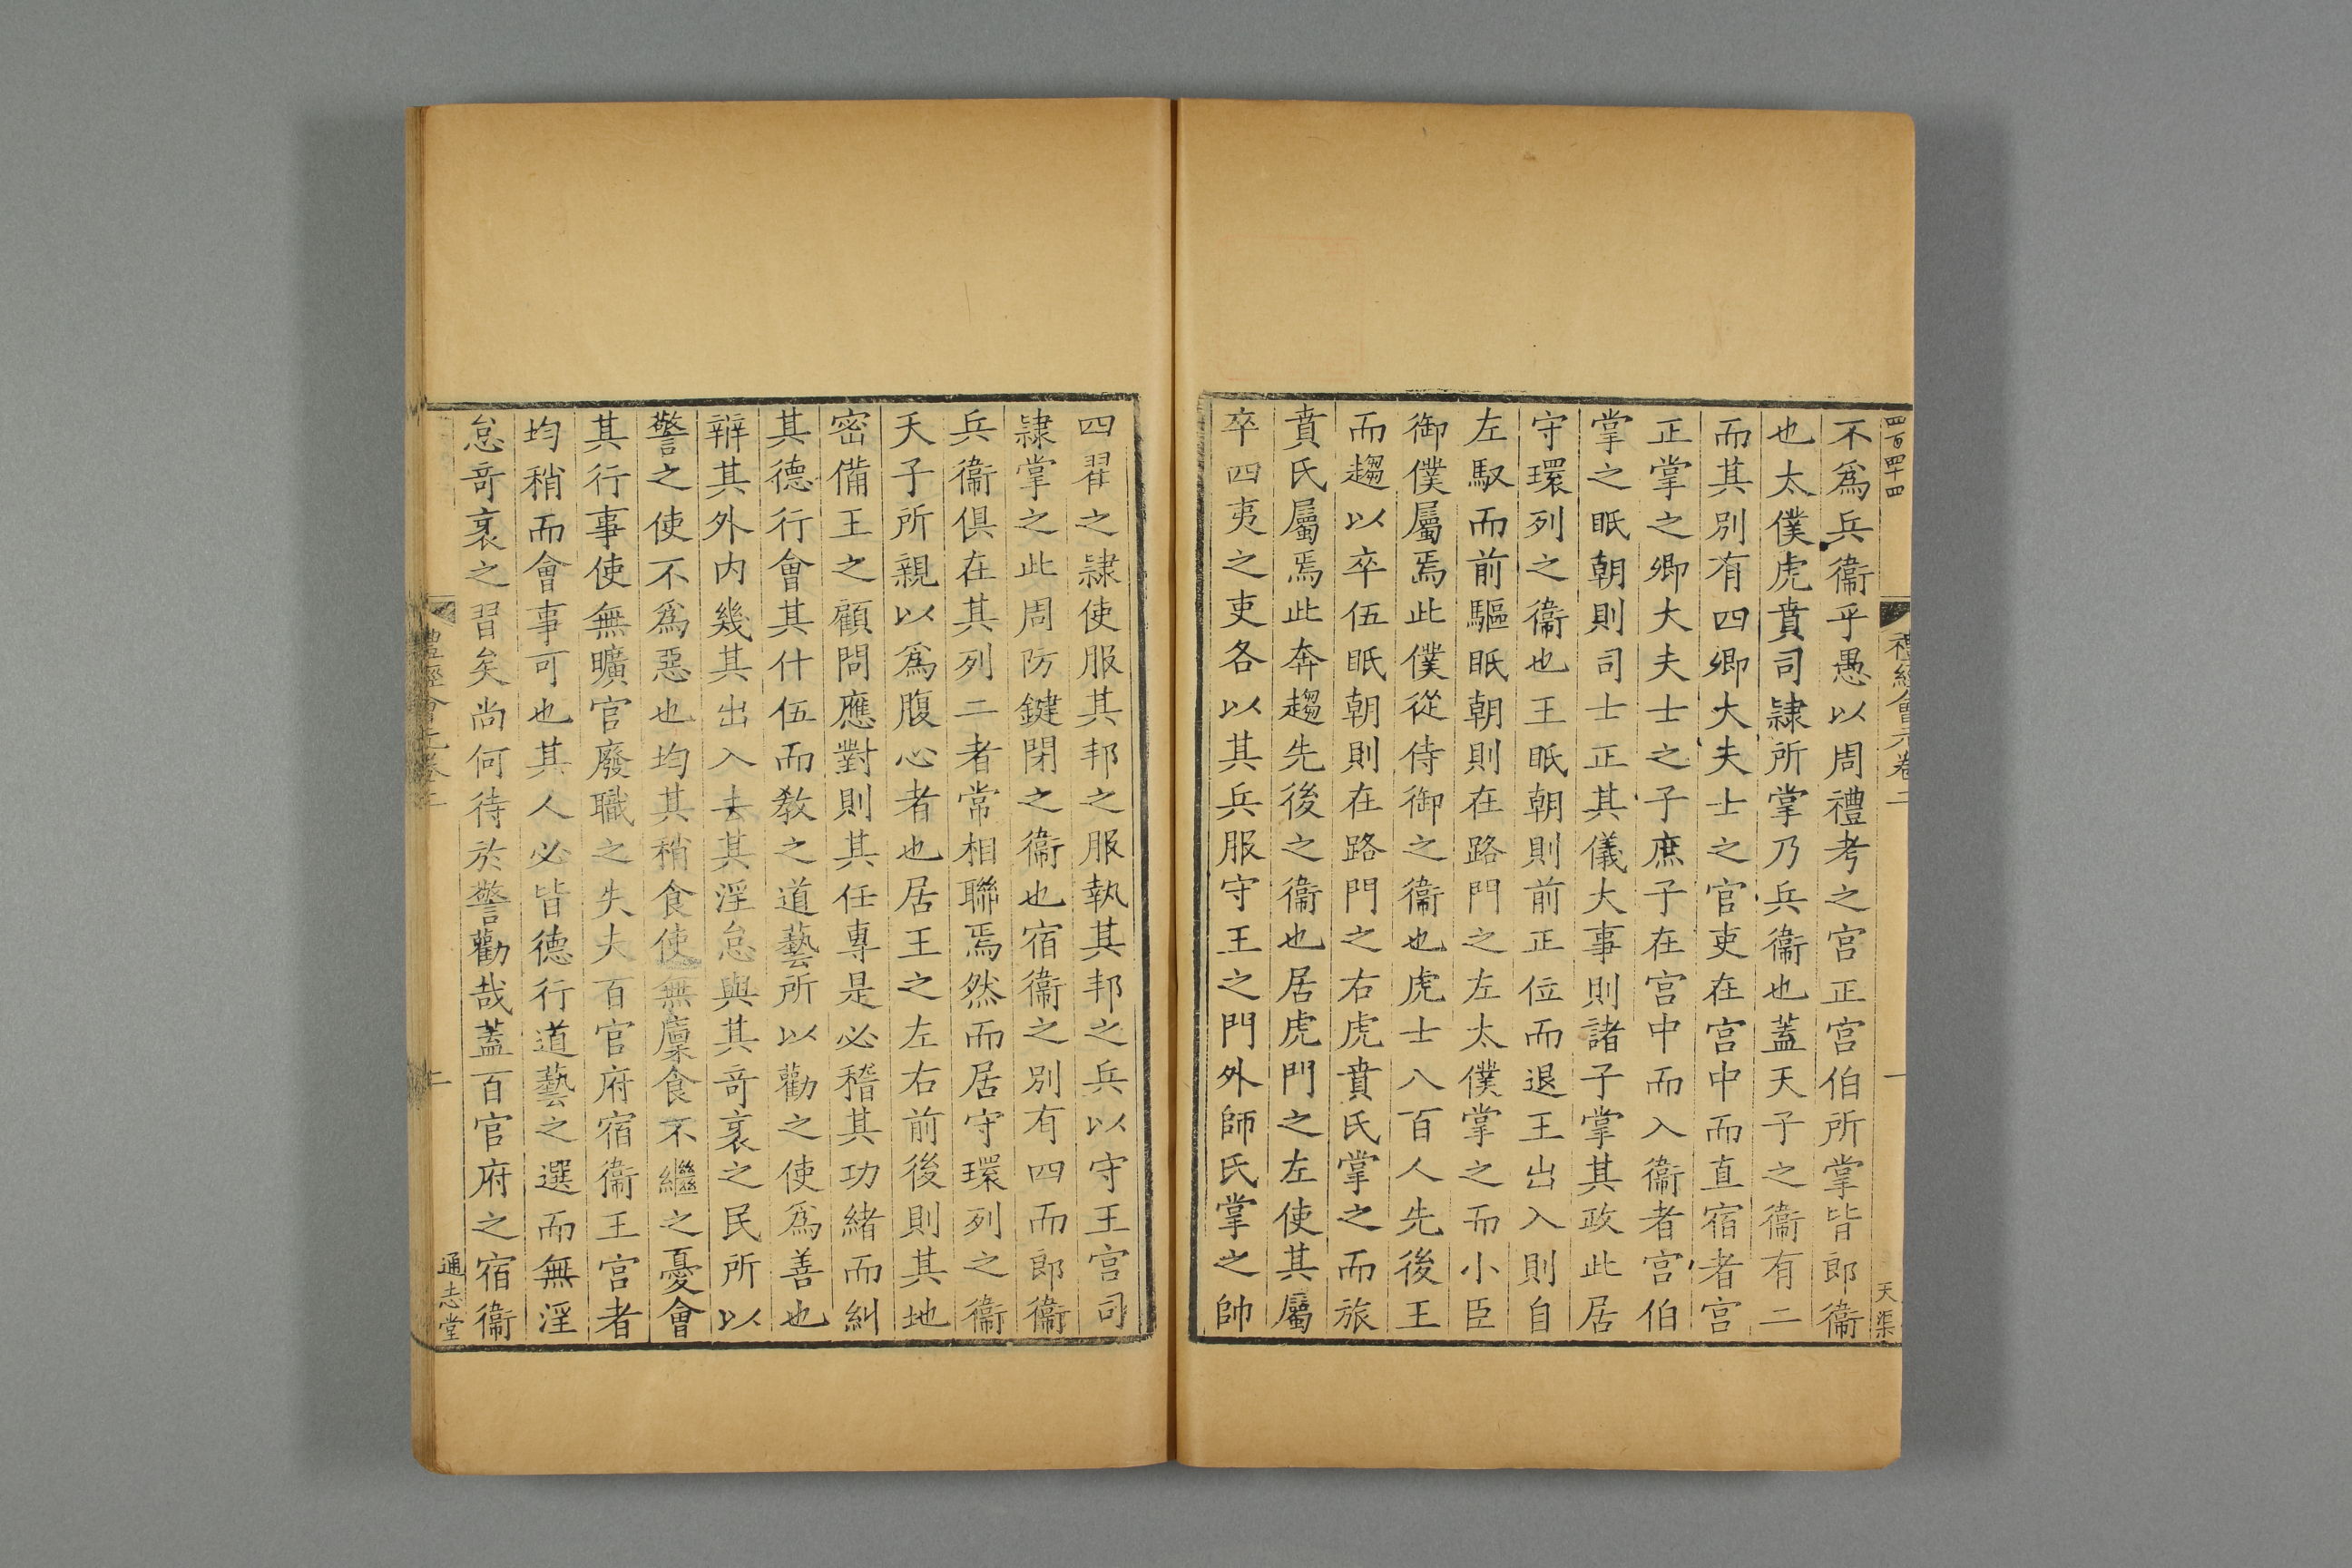 四百四十四
禮經會元卷二
一
天渠
不爲兵衞乎愚以周禮考之宫正宫伯所掌皆郎衞
也太僕虎賁司隷所掌乃兵衞也蓋天子之衞有二
而其別有四卿大夫士之官吏在宫中而直宿者宫
正掌之卿大夫士之子庶子在宫中而入衞者宫伯
掌之眂朝則司士正其儀大事則諸子掌其政此居
守環列之衞也王眂朝則前正位而退王出入則自
左馭而前驅眂朝則在路門之左太僕掌之而小臣
御僕屬焉此僕從侍御之衞也虎士八百人先後王
而趨以卒伍眂朝則在路門之右虎賁氏掌之而旅
賁氏屬焉此奔趨先後之衞也居虎門之左使其屬
卒四夷之吏各以其兵服守王之門外師氏掌之帥
四翟之隷使服其邦之服執其邦之兵以守王宫司
隷掌之此周防鍵閉之衞也宿衞之別有四而郎衞
兵衞俱在其列二者常相聯焉然而居守環列之衞
天子所親以爲腹心者也居王之左右前後則其地
密備王之顧問應對則其任專是必稽其功緒而糾
其德行會其什伍而教之道藝所以勸之使爲善也
辨其外内幾其出入去其淫怠與其奇衺之民所以
警之使不爲惡也均其稍食使無廩食不繼之憂會
其行事使無曠官廢職之失夫百官府宿衞王宫者
均稍而會事可也其人必皆德行道藝之選而無淫
怠奇衺之習矣尚何待於警勸哉蓋百官府之宿衞
禮經會元卷二
二
通志堂